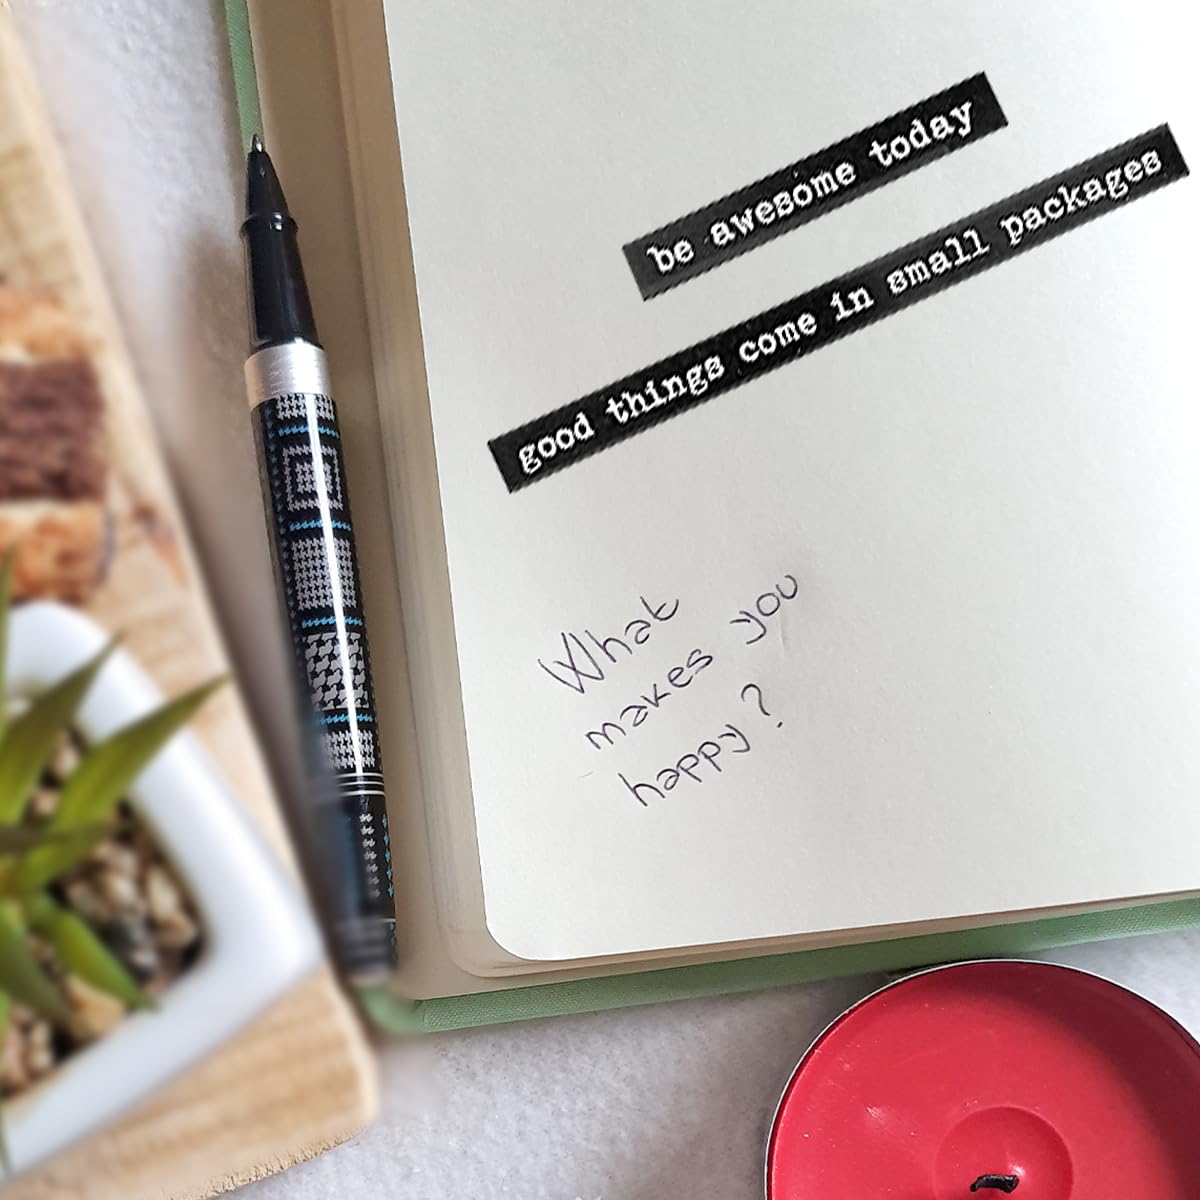 be awesome today
good things come in small packages
What
makes you
happy?